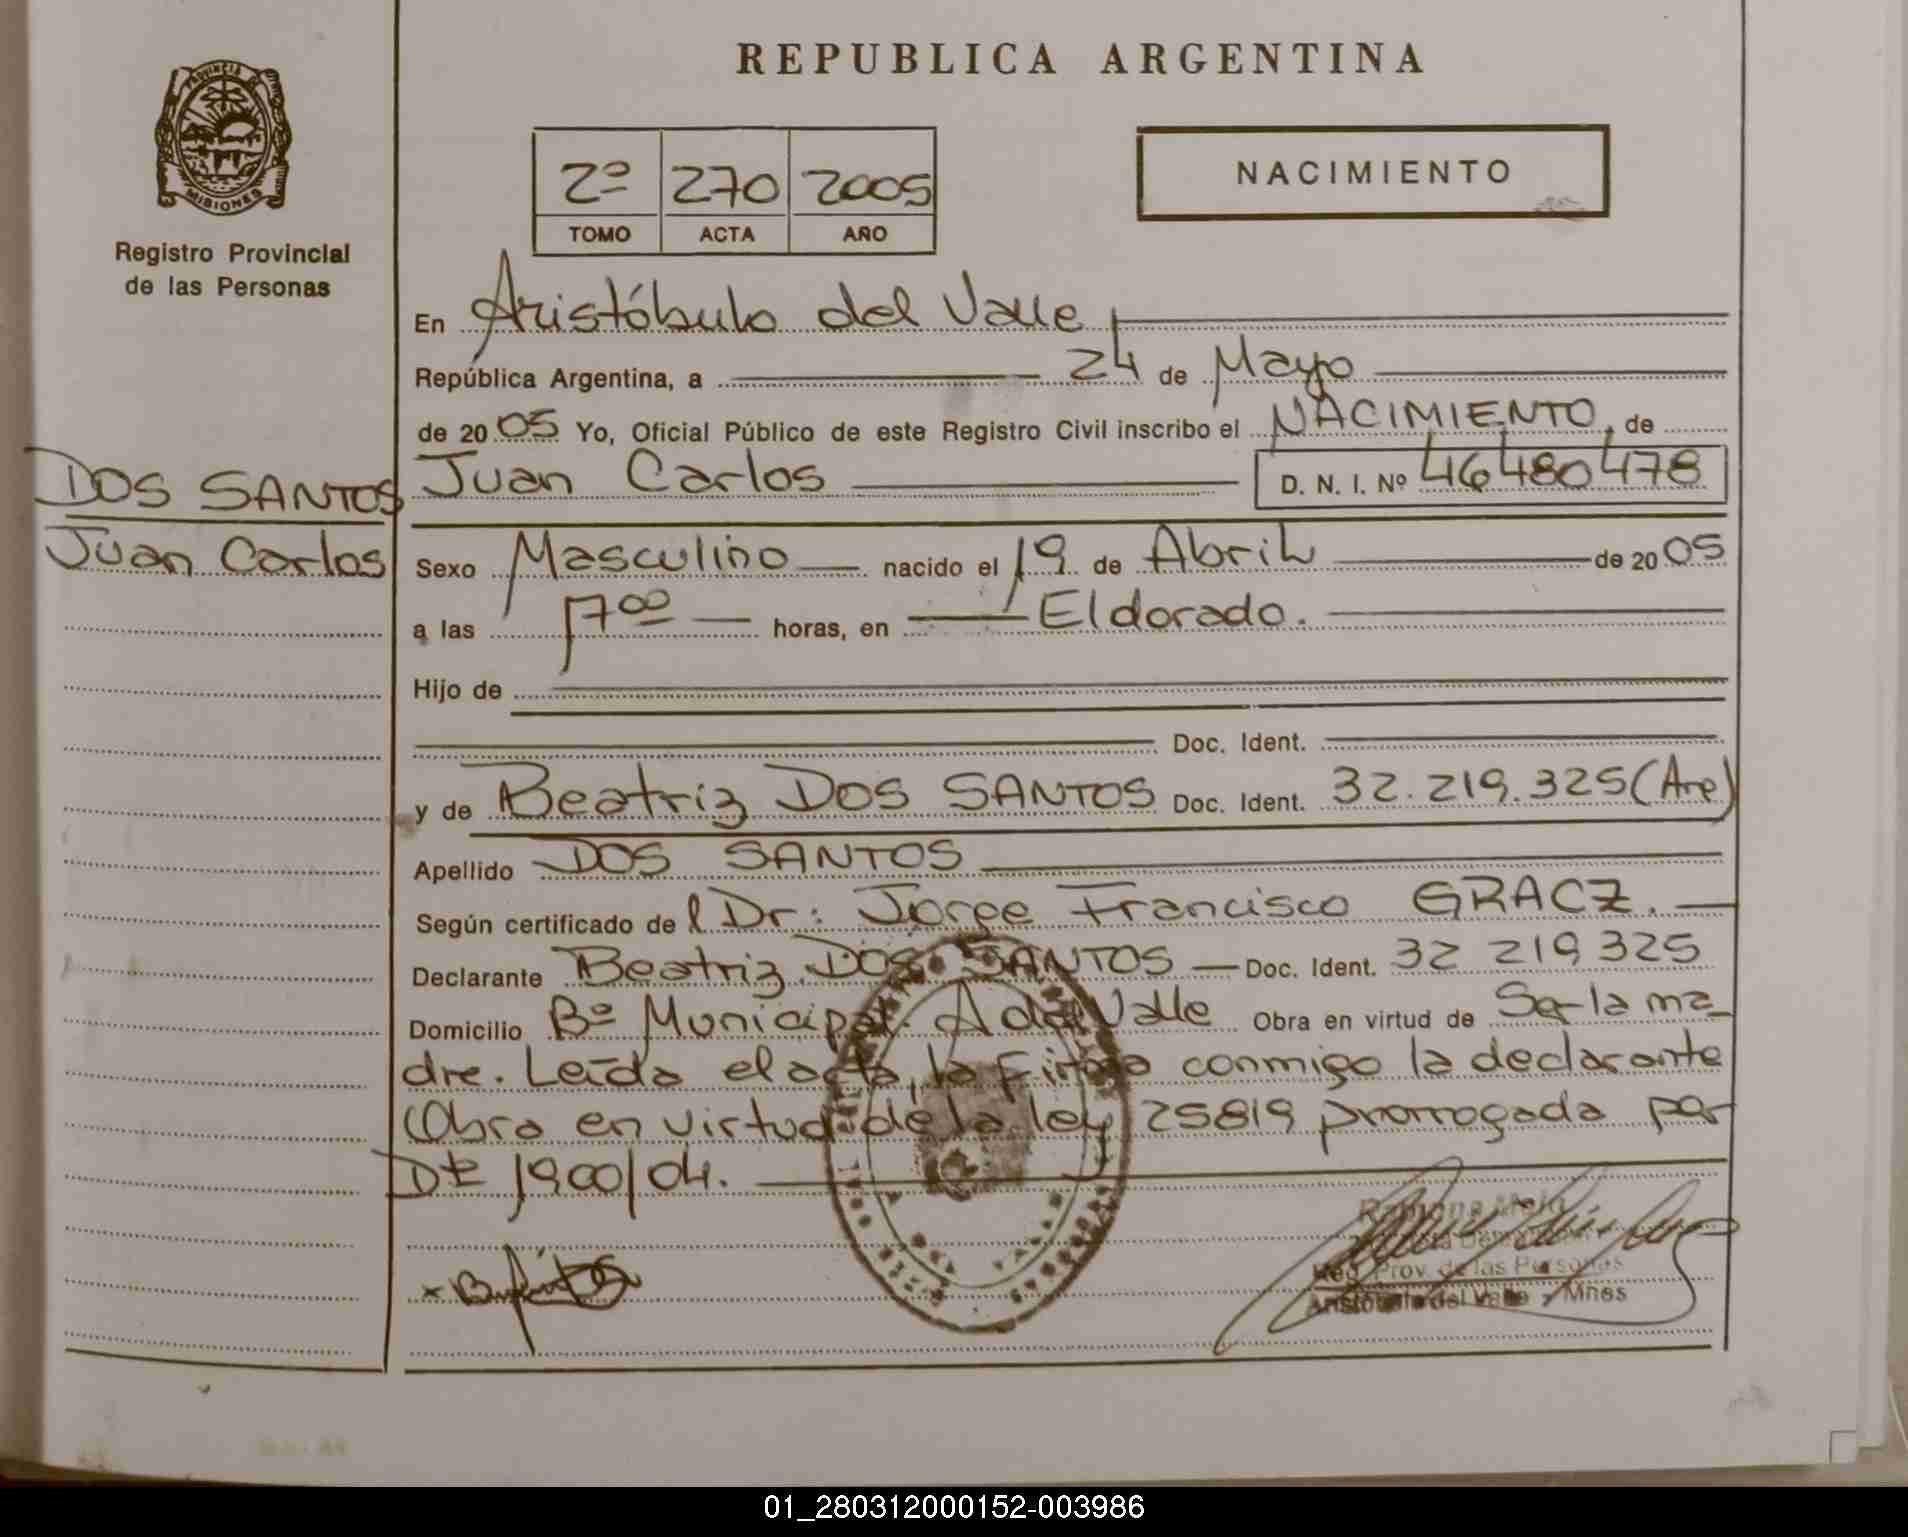 REPUBLICA ARGENTINA
PROVINCIA
MISIONES
Registro Provincial
de las Personas
2º 270 2005
TOMO ACTA AÑO
NACIMIENTO
En Aristóbulo del Valle
República Argentina, a 24 de Mayo
de 2005 Yo, Oficial Público de este Registro Civil inscribo el NACIMIENTO, de
DOS SANTOS
Juan Carlos
Juan Carlos D. N. I. Nº 46480478
Sexo Masculino nacido el 19 de Abril de 2005
a las 17 00 horas, en Eldorado.
Hijo de
Doc. Ident.
y de Beatriz DOS SANTOS Doc. Ident. 32.219.325 (Arg)
Apellido DOS SANTOS
Según certificado del Dr: Jorge Francisco GRACZ.
Declarante Beatriz DOS SANTOS Doc. Ident. 32 219 325
Domicilio Bº Municipal. A del Valle Obra en virtud de Ser la ma
dre. Leída el acta, la firma conmigo la declarante
(Obra en virtud de la ley 25819 prorrogada por
Dt 1900/04.
Reg. Prov. de las Personas
Aristóbulo del Valle - Mnes
01_280312000152-003986